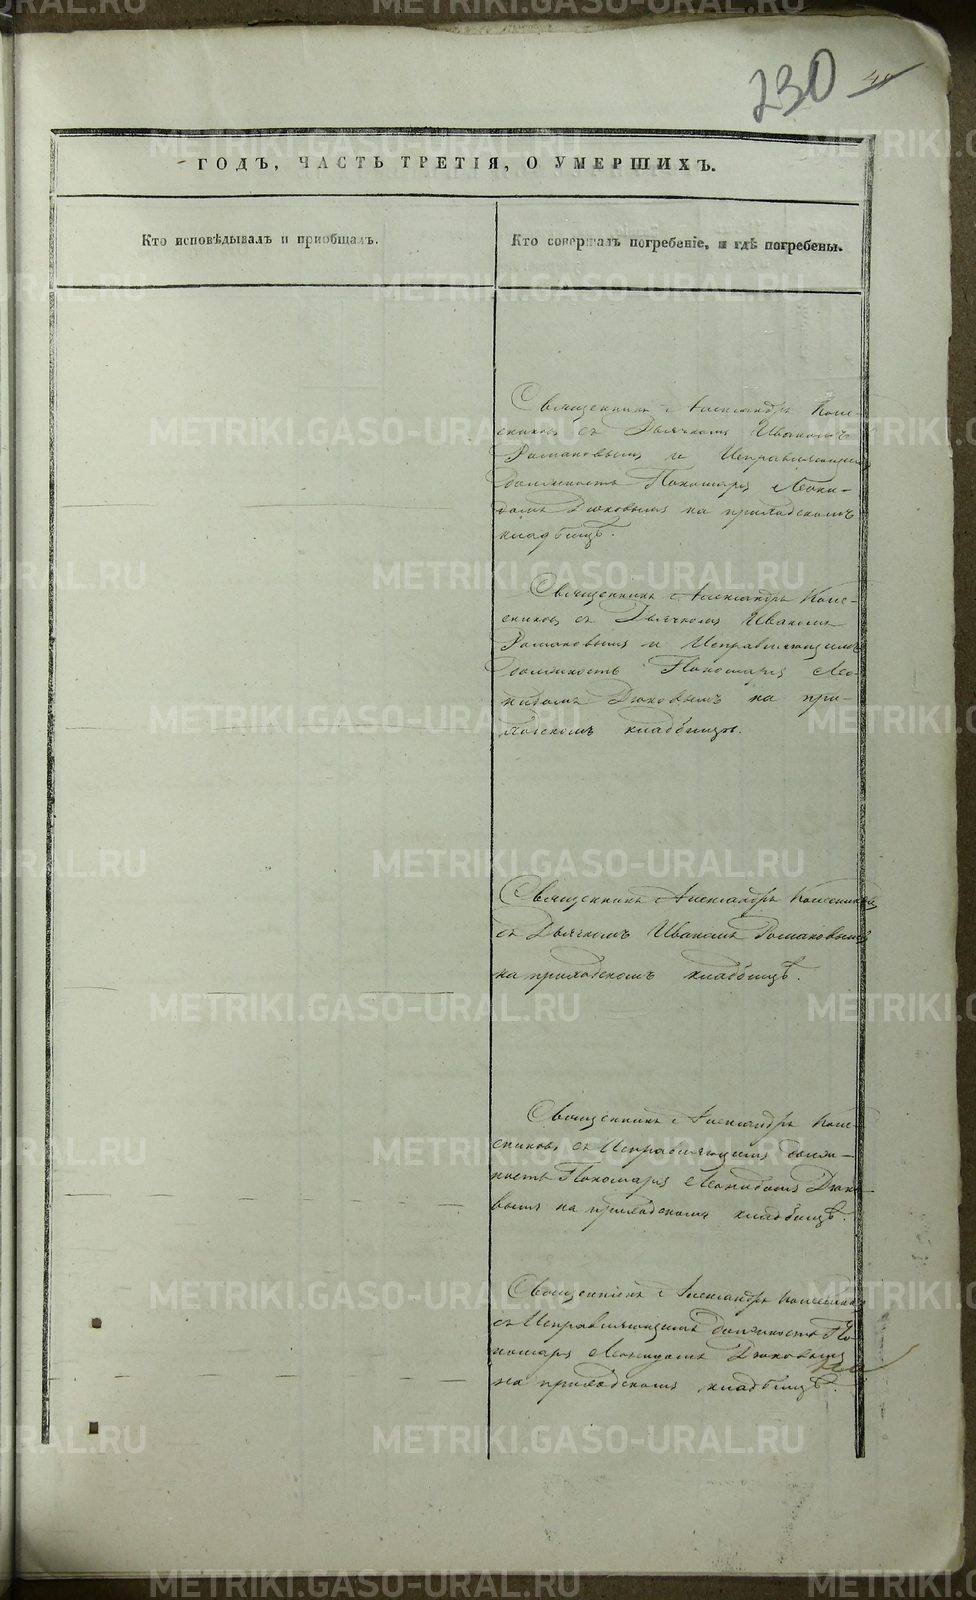 230
ГОДЪ, ЧАСТЬ ТРЕТІЯ, О УМЕРШИХЪ.
Кто исповѣдывалъ и пріобщалъ.
Кто совершалъ погребеніе, и гдѣ погребены.
Священникъ Александръ Колес-
никовъ съ Дьячкомъ Иваномъ
Романовымъ и Исправляющимъ
должность Пономаря Леони-
домъ Дюковымъ на приходскомъ
кладбищѣ.
Священникъ Александръ Колес-
никовъ съ Дьячкомъ Иваномъ
Романовымъ и Исправляющимъ
должность Пономаря Лео-
нидомъ Дюковымъ на при-
ходскомъ кладбищѣ.
Священникъ Александръ Колесниковъ
съ Дьячкомъ Иваномъ Романовымъ
на приходскомъ кладбищѣ.
Священникъ Александръ Колес-
никовъ съ Исправляющимъ долж-
ность Пономаря Леонидомъ Дюко-
вымъ на приходскомъ кладбищѣ.
Священникъ Александръ Колесниковъ
съ Исправляющимъ должность По-
номаря Леонидомъ Дюковымъ
на приходскомъ кладбищѣ.
METRIKI.GASO-URAL.RU